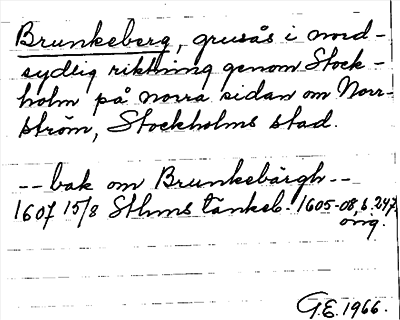 Brunkeberg, grusås i nord-
sydlig riktning genom Stock-
holm på norra sidan om Norr-
ström, Stockholms stad.
-- bak om Brunkebärgh --
1607 15/8 Sthms tänkeb. 1605-08, s. 247.
orig.
G.E. 1966.